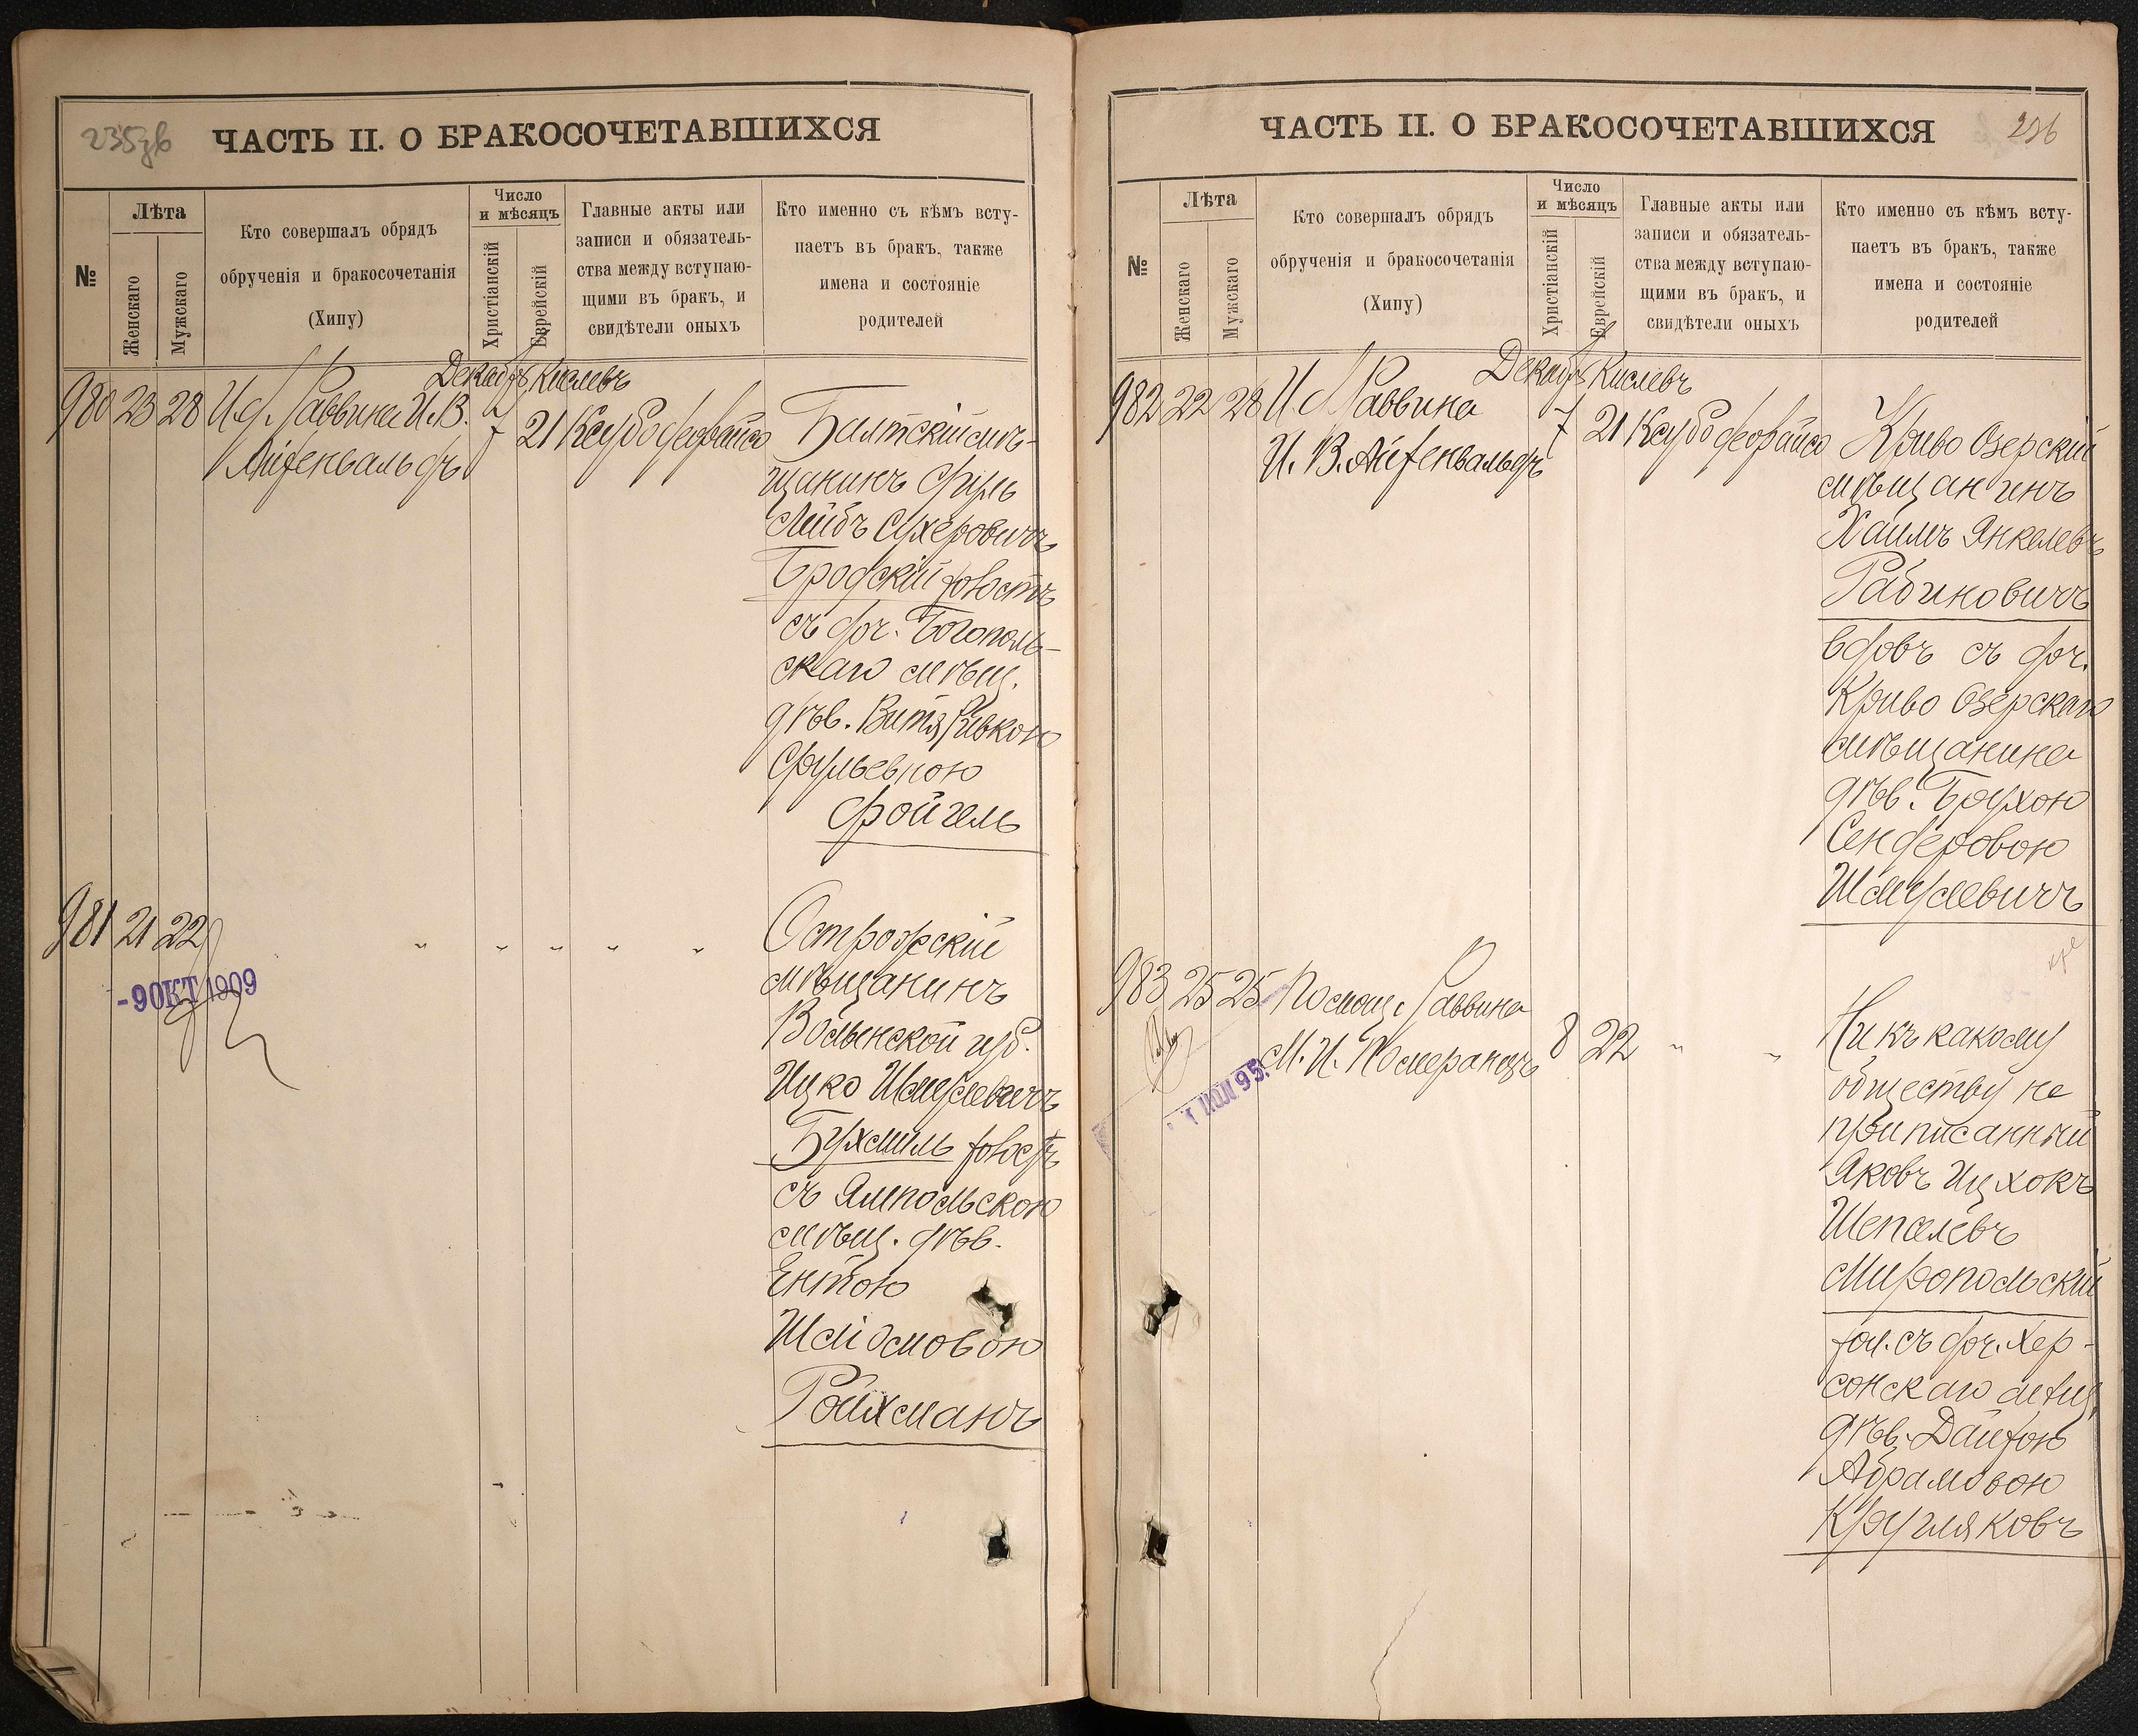 235об
ЧАСТЬ II. О БРАКОСОЧЕТАВШИХСЯ
№
Лѣта
Женскаго
Мужскаго
Кто совершалъ обрядъ
обрученія и бракосочетанія
(Хипу)
Число
и мѣсяцъ
Христіанскій
Еврейскій
Главные акты или
записи и обязатель-
ства между вступаю-
щими въ бракъ, и
свидѣтели оныхъ
Кто именно съ кѣмъ всту-
паетъ въ бракъ, также
имена и состояніе
родителей
Декабр Кислевъ
980 23 28 И. д. Раввина И. В.
Айзенвальдъ
7 21 Ксубо деорайсо
Балтскій мѣ-
щанинъ Сруль
Лейбъ Сухеровичъ
Бродскій холостъ
съ доч. Богополь-
скаго мѣщ.
дѣв. Витя Ривкою
Срульевною
Фойгель
981 21 22 " " " " "
-9 ОКТ 1909
Острожскій
мѣщанинъ
Волынской губ.
Ицко Шмулевичъ
Бухмиль холостъ
съ Ямпольскою
мѣщ. дѣв.
Ентою
Шліомовою
Ройхманъ
ЧАСТЬ II. О БРАКОСОЧЕТАВШИХСЯ
236
№
Лѣта
Женскаго
Мужскаго
Кто совершалъ обрядъ
обрученія и бракосочетанія
(Хипу)
Число
и мѣсяцъ
Христіанскій
Еврейскій
Главные акты или
записи и обязатель-
ства между вступаю-
щими въ бракъ, и
свидѣтели оныхъ
Кто именно съ кѣмъ всту-
паетъ въ бракъ, также
имена и состояніе
родителей
Декабр Кислевъ
982 22 28 И. д. Раввина
И. В. Айзенвальдъ
7 21 Ксубо деорайсо
Криво Озерскій
мѣщанинъ
Хаимъ Янкелевъ
Рабиновичъ
вдовъ съ доч.
Криво Озерскаго
мѣщанина
дѣв. Брухою
Сендеровою
Шмулевичъ
983 25 25 Помощ. Раввина
М. И. Померанцъ
8 22 " "
ІЮЛ 95
Ни къ какому
обществу не
приписанный
Яковъ Ицхокъ
Шепселевъ
Миропольскій
хол. съ доч. Хер-
сонскаго мѣщ.
дѣв. Двойрою
Абрамовою
Кругляковъ